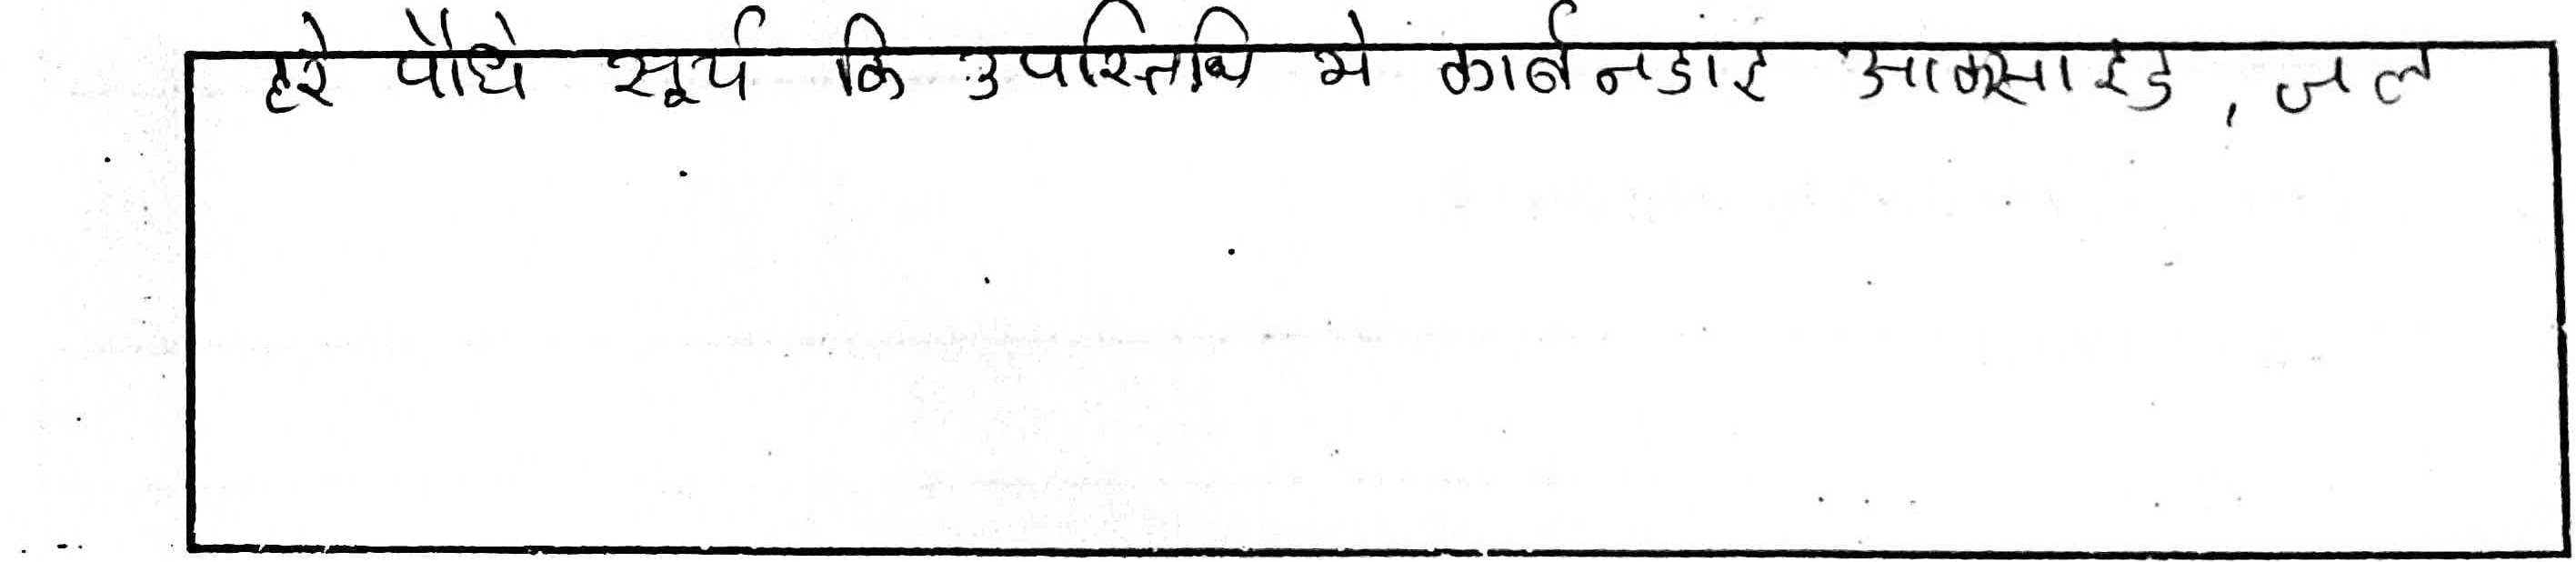 हरे पौधे सूर्य कि उपस्तिथि मे कार्बनडाइ आक्साइड, जल